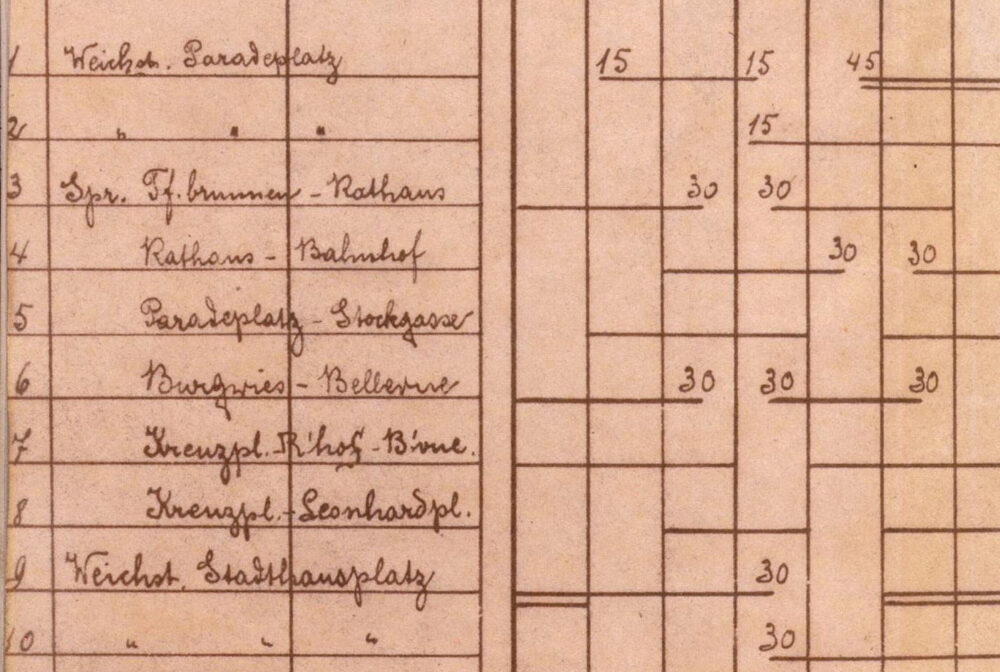 1 Weichst. Paradeplatz 15 15 45
2 " " " 15
3 Spr. Pf.brunnen - Rathaus 30 30
4 Rathaus - Bahnhof 30 30
5 Paradeplatz - Stockgasse
6 Burgwies - Bellevue 30 30 30
7 Kreuzpl. R'hof - B'vue.
8 Kreuzpl. - Leonhardpl.
9 Weichst. Stadthausplatz 30
10 " " " 30